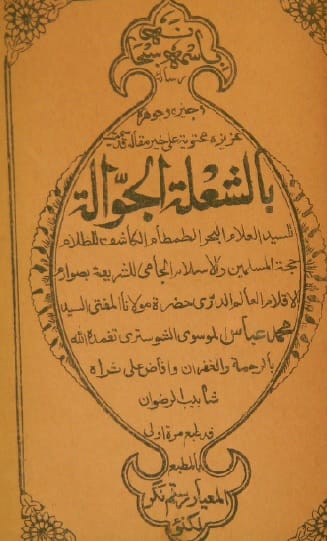 باسمه سبحانه
رسالة
وجيزة وجوهرة
عزيزة محتوية على خير مقالة
بالشعلة الجوّالة
للسيد العلام البحر الطمطام الكاشف للظلام
حجة المسلمين والاسلام الحامي للشريعة بصوارم
الاقلام العالم الدري حضرة مولانا المفتي السيد
محمد عباس الموسوي الشوستري تغمده الله
بالرحمة والغفران وافاض على ثراه
شآبيب الرضوان
قد طبع مرة اولى
بالمطبع
المعيار رستم نگر
لكنئو